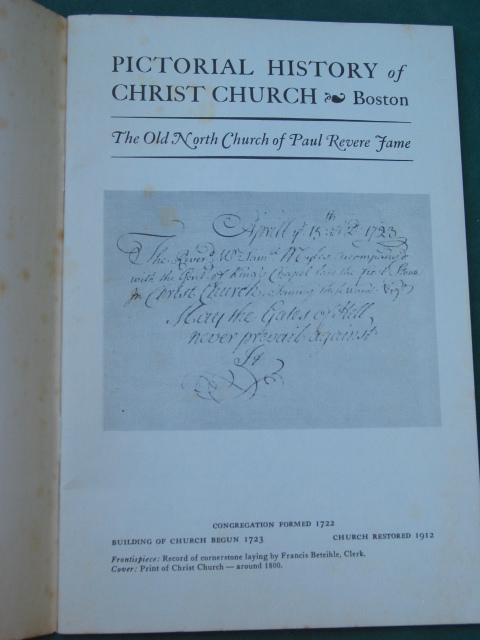 PICTORIAL HISTORY of
CHRIST CHURCH Boston
The Old North Church of Paul Revere Fame
Aprill ye 15th 1723
The Reverd Mr Saml Myles accompanyd
with the Gentn of King's Chapel laid the first Stone
Christ Church
May the Gates of Hell
never prevail against
It
CONGREGATION FORMED 1722
BUILDING OF CHURCH BEGUN 1723 CHURCH RESTORED 1912
Frontispiece: Record of cornerstone laying by Francis Beteihle, Clerk.
Cover: Print of Christ Church — around 1800.